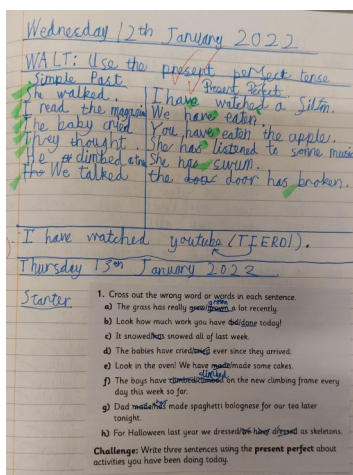 Wednesday 12th January 2022
WALT: Use the present perfect tense
Simple Past
Present Perfect
She walked.
I have watched a film.
I read the magazine
We have eaten.
The baby cried
You have eaten the apple.
They thought.
She has listened to some music
He climbed a tree
She has swum.
We talked
the door has broken.
I have watched youtube (TFERD1).
Thursday 13th January 2022
Starter
1. Cross out the wrong word or words in each sentence.
a) The grass has really grew/grown a lot recently.
grown
b) Look how much work you have did/done today!
c) It snowed/has snowed all of last week.
d) The babies have cried/cried ever since they arrived.
e) Look in the oven! We have made/made some cakes.
f) The boys have climbed/climbed on the new climbing frame every
day this week so far.
g) Dad made/has made spaghetti bolognese for our tea later
tonight.
h) For Halloween last year we dressed/have dressed as skeletons.
Challenge: Write three sentences using the present perfect about
activities you have been doing today.